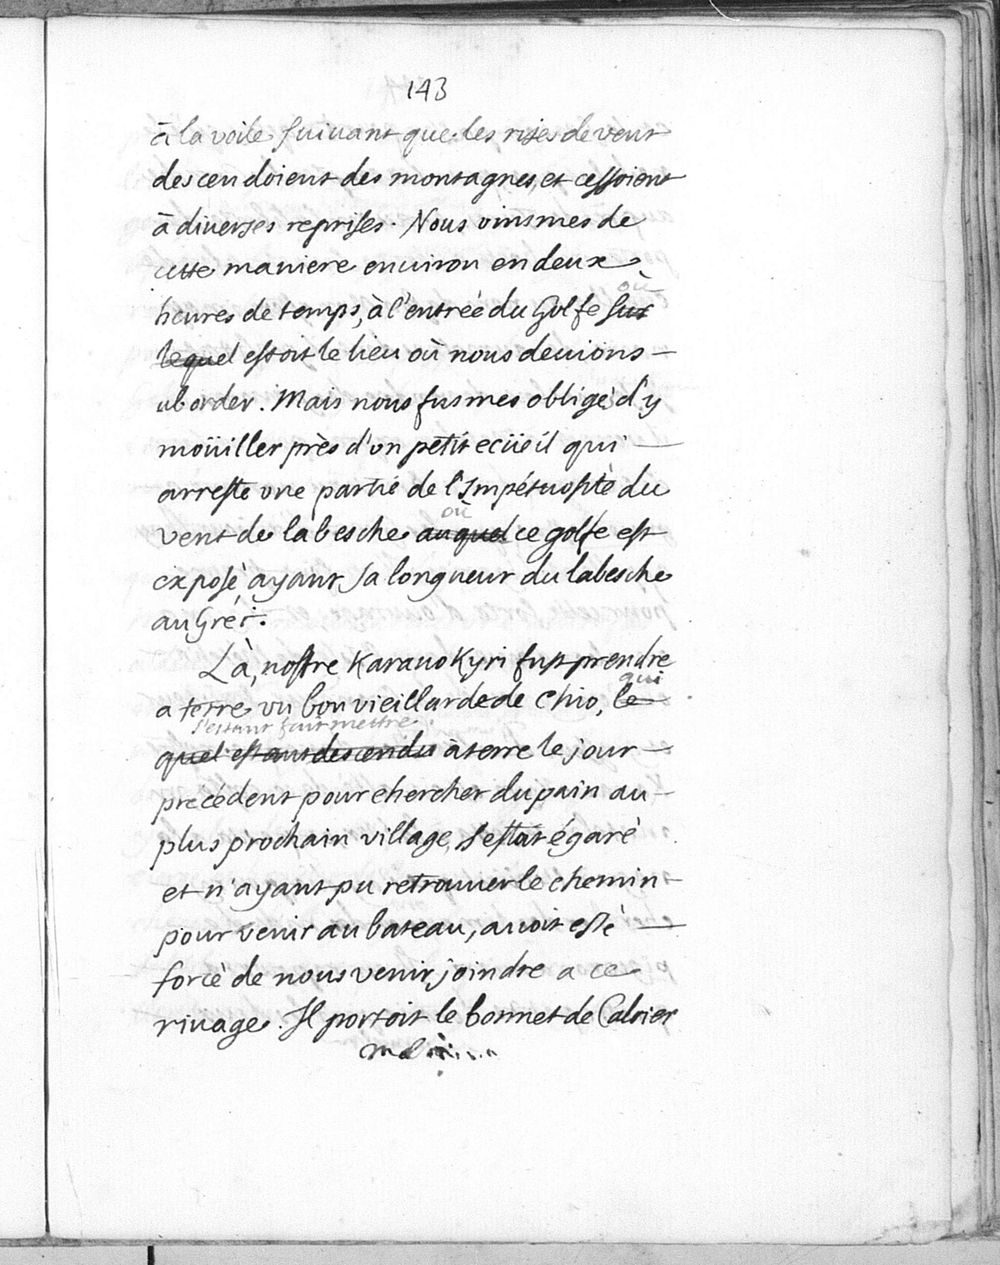 143
à la voile suivant que les rises de vent
descendoient des montagnes, et cessoient
à diverses reprises. Nous vinsmes de
cette maniere environ en deux
heures de temps, à l'entrée du Golfe sur
où
lequel estoit le lieu où nous devions
aborder. Mais nous fusmes obligés d'y
moüiller près d'un petit ecüeil qui
arreste une partie de l'Impétuosité du
vent de labesche auquel ce golfe est
où
exposé, ayant sa longueur du labesche
au Grec.
Là, nostre Karavokyri fust prendre
a terre un bon vieillard de de Chio, le
qui
quel estant descendu à terre le jour
s'estant fait mettre
précédent pour chercher du pain au
plus prochain village, s'estat égaré
et n'ayant pu retrouver le chemin
pour venir au bateau, avoit esté
forcé de nous venir joindre a ce
rivage. Il portoit le bonnet de Caloier